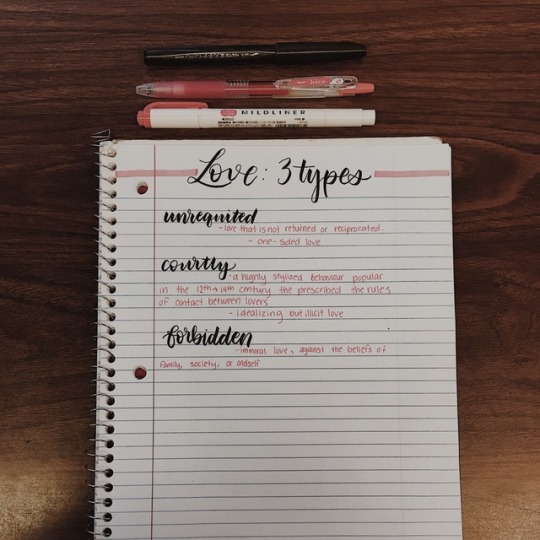 MILDLINER
Love: 3 types
unrequited
-love that is not returned or reciprocated.
- one-sided love
courtly
-a highly stylized behaviour popular
in the 12th→14th century the prescribed the rules
of contact between lovers
- idealizing but illicit love
forbidden
-immoral love, against the beliefs of
family, society, or oneself